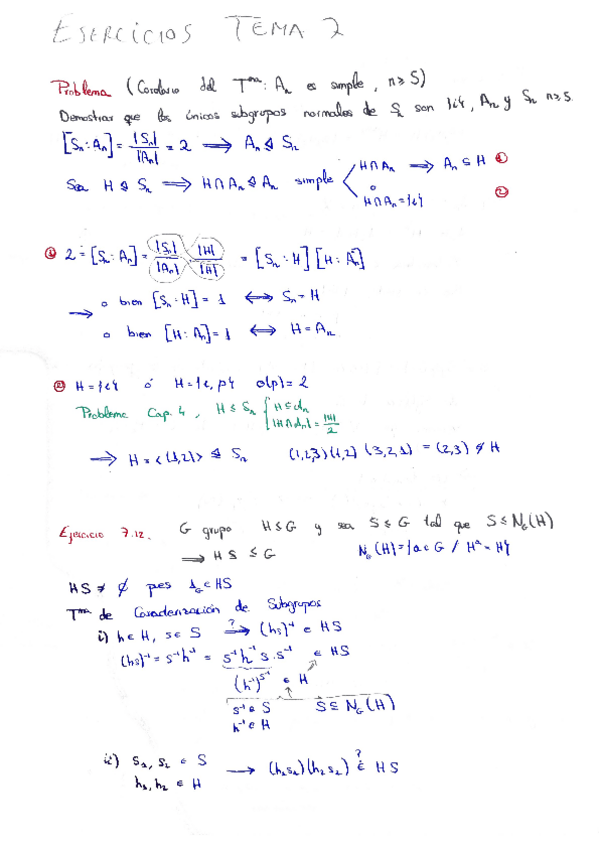 EJERCICIOS TEMA 2
Problema (Corolario del Tma: An es simple, n≥5)
Demostrar que los únicos subgrupos normales de Sn son {e}, An y Sn n≥5.
[Sn:An] = |Sn|/|An| = 2 ⟹ An ⊴ Sn
Sea H ⊴ Sn ⟹ H∩An ⊴ An simple
H∩An ⟹ An ⊆ H ①
o
H∩An={e} ②
① 2 = [Sn:An] = |Sn|/|An| |H|/|H| = [Sn:H][H:An]
→ o bien [Sn:H] = 1 ⟺ Sn=H
o bien [H:An] = 1 ⟺ H=An
② H={e} ó H={e,p} o(p)=2
Problema Cap. 4, H ≤ Sn { H⊆An
|H∩An| = |H|/2
⟹ H = <(1,2)> ⊴ Sn (1,2,3)(1,2)(3,2,1) = (2,3) ∉ H
Ejercicio 7.12. G grupo H≤G y sea S≤G tal que S≤NG(H)
⟹ HS ≤ G NG(H)={a∈G / Hª=H}
HS ≠ ∅ pues 1G∈HS
Tma de Caracterización de Subgrupos
i) h∈H, s∈S ?⟹ (hs)⁻¹ ∈ HS
(hs)⁻¹ = s⁻¹h⁻¹ = s⁻¹h⁻¹s·s⁻¹ ∈ HS
(h⁻¹)^s⁻¹ ∈ H
s⁻¹∈S S≤NG(H)
h⁻¹∈H
ii) s1, s2 ∈ S
h1, h2 ∈ H ⟶ (h1s1)(h2s2) ?∈ HS